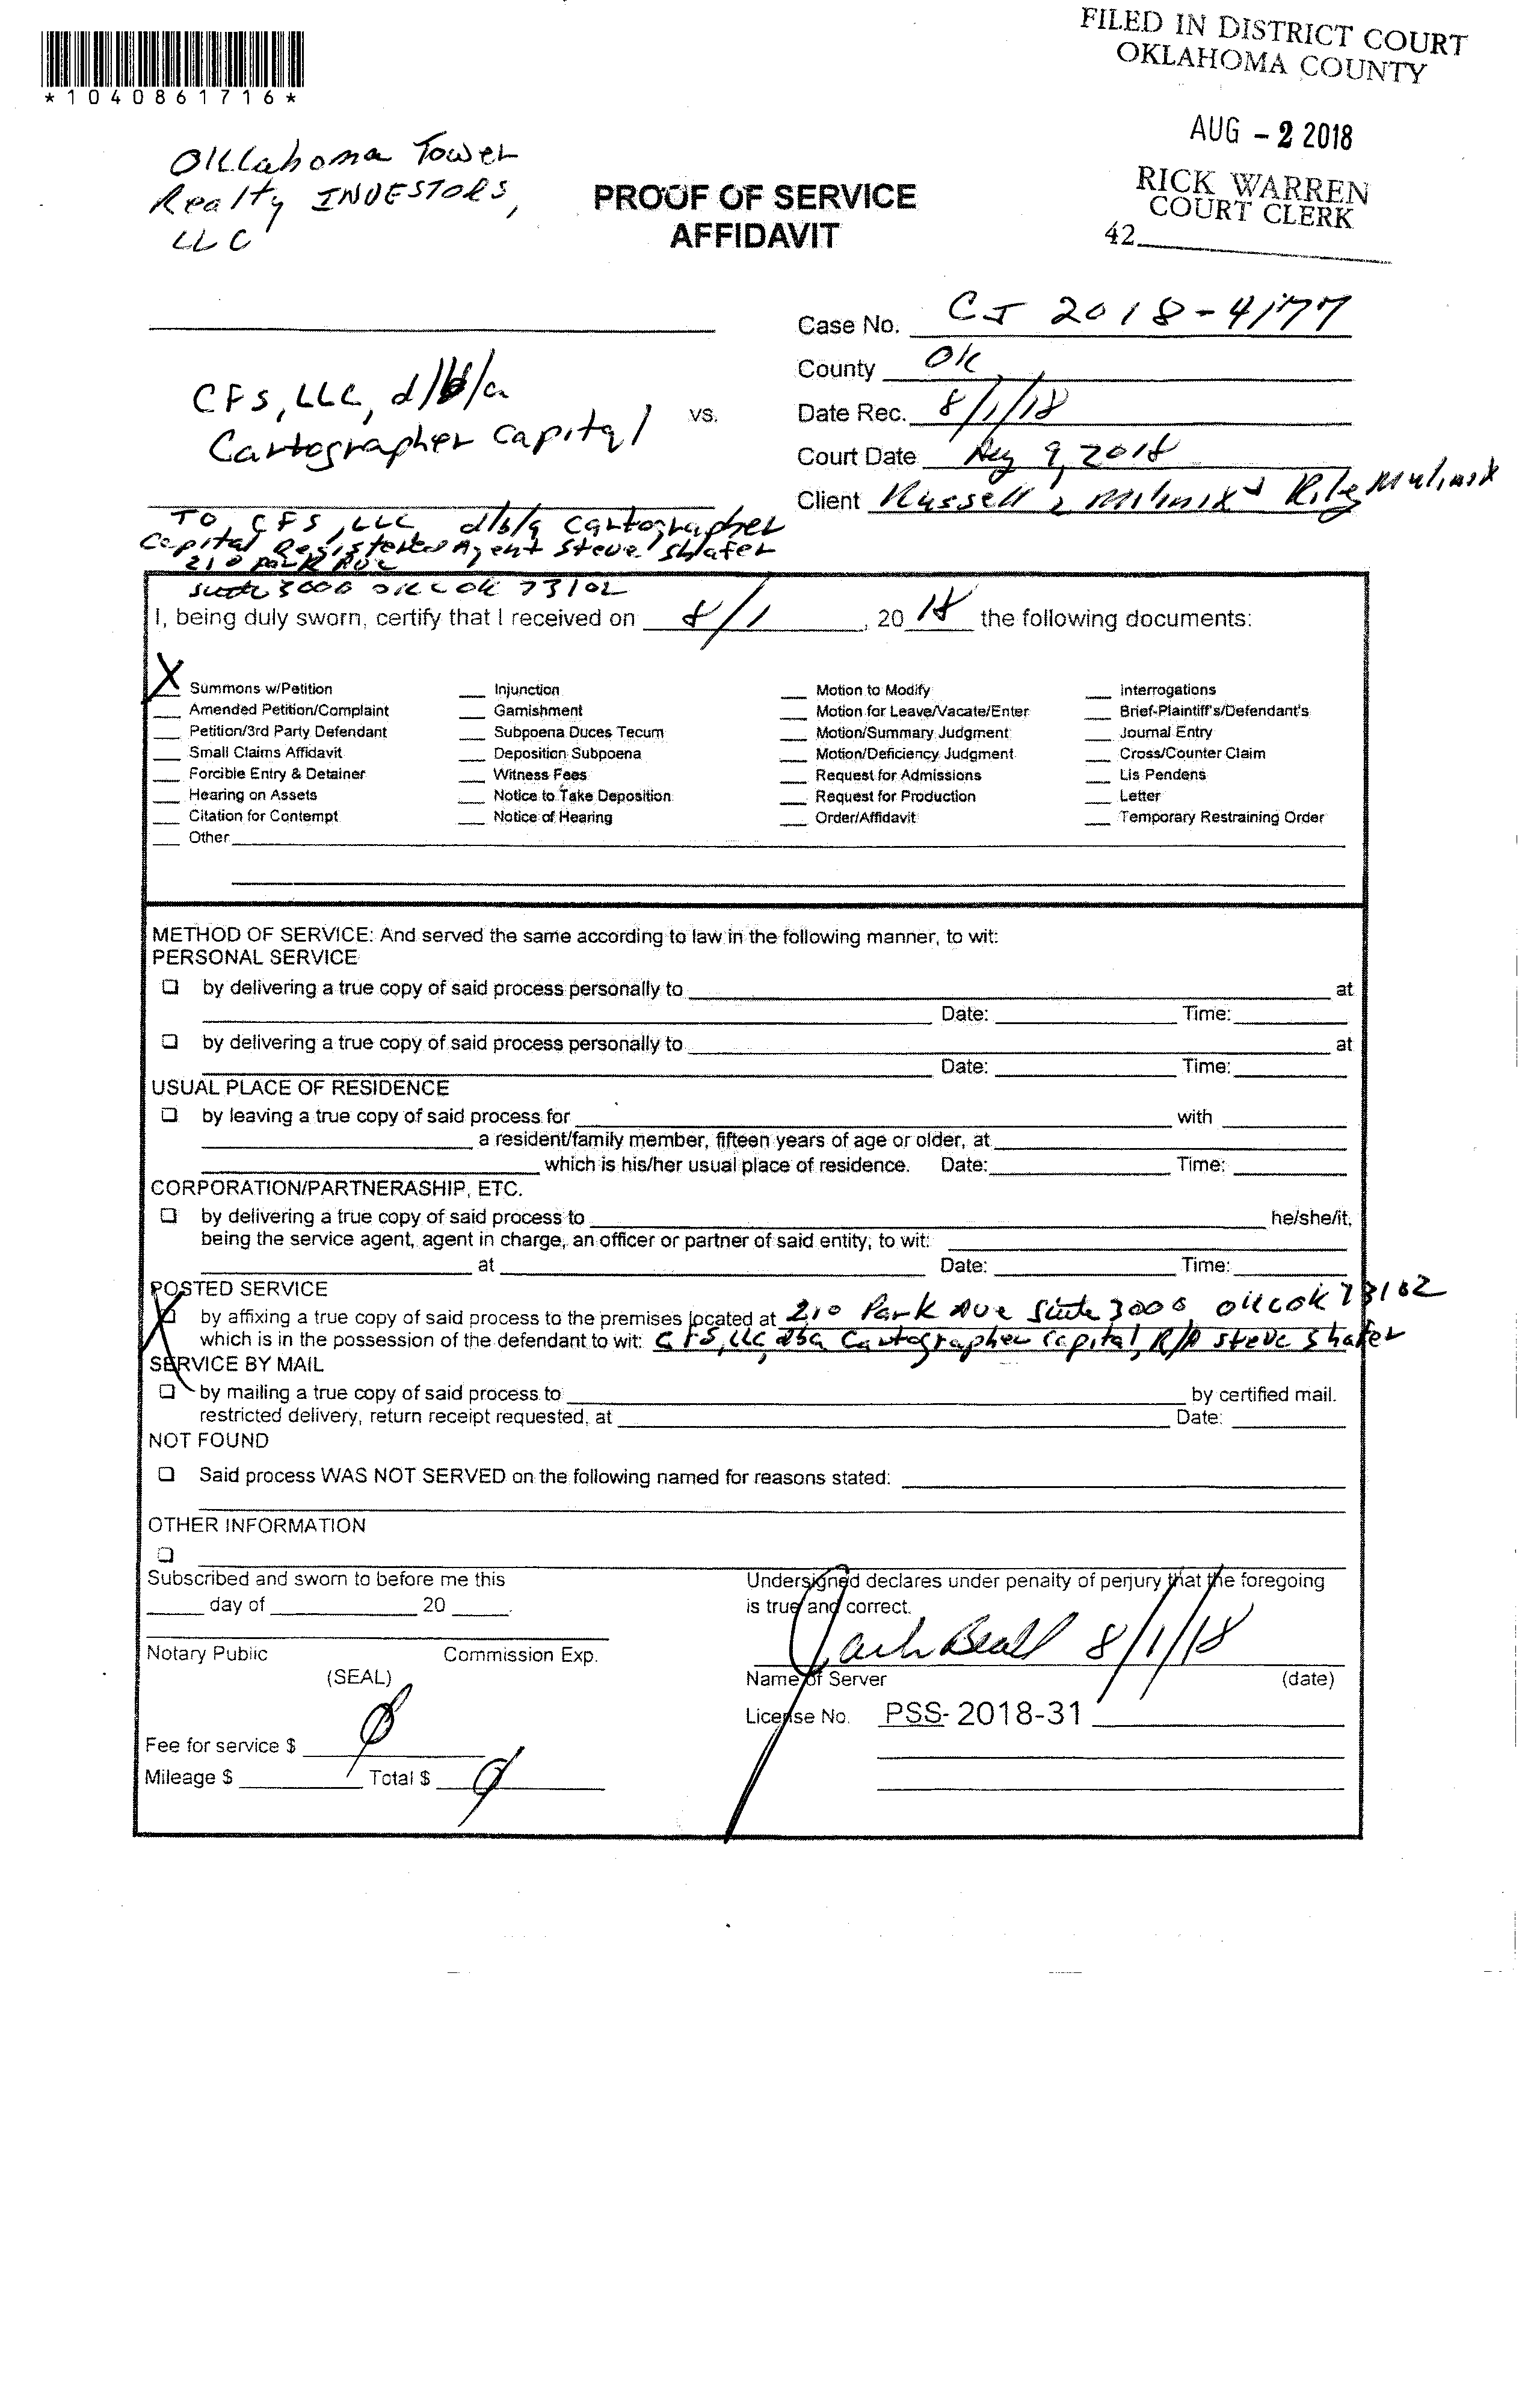 FILED IN DISTRICT COURT
OKLAHOMA COUNTY
*1040861716*
AUG - 2 2018
RICK WARREN
COURT CLERK
42
Oklahoma Tower
Realty INVESTORS,
LLC
PROOF OF SERVICE
AFFIDAVIT
Case No. CJ 2018-4177
County OK
CFS, LLC, d/b/a
Cartographer Capital
vs.
Date Rec. 8/1/18
Court Date Aug 9, 2018
Client Russell Mulinix & Riley Mulinix
TO, CFS, LLC d/b/a Cartographer
Capital Registered Agent Steve Shafer
210 Park Ave
Suite 3000 OKC OK 73102
I, being duly sworn, certify that I received on 8/1, 2018 the following documents:
X Summons w/Petition
Amended Petition/Complaint
Petition/3rd Party Defendant
Small Claims Affidavit
Forcible Entry & Detainer
Hearing on Assets
Citation for Contempt
Other
Injunction
Garnishment
Subpoena Duces Tecum
Deposition Subpoena
Witness Fees
Notice to Take Deposition
Notice of Hearing
Motion to Modify
Motion for Leave/Vacate/Enter
Motion/Summary Judgment
Motion/Deficiency Judgment
Request for Admissions
Request for Production
Order/Affidavit
Interrogations
Brief-Plaintiff's/Defendant's
Journal Entry
Cross/Counter Claim
Lis Pendens
Letter
Temporary Restraining Order
METHOD OF SERVICE: And served the same according to law in the following manner, to wit:
PERSONAL SERVICE
by delivering a true copy of said process personally to at
Date: Time:
by delivering a true copy of said process personally to at
Date: Time:
USUAL PLACE OF RESIDENCE
by leaving a true copy of said process for with
a resident/family member, fifteen years of age or older, at
which is his/her usual place of residence. Date: Time:
CORPORATION/PARTNERASHIP, ETC.
by delivering a true copy of said process to he/she/it,
being the service agent, agent in charge, an officer or partner of said entity, to wit:
at Date: Time:
POSTED SERVICE
X by affixing a true copy of said process to the premises located at 210 Park Ave Suite 3000 OKC OK 73102
which is in the possession of the defendant to wit: CFS, LLC, dba Cartographer Capital, R/A Steve Shafer
SERVICE BY MAIL
by mailing a true copy of said process to by certified mail.
restricted delivery, return receipt requested, at Date:
NOT FOUND
Said process WAS NOT SERVED on the following named for reasons stated:
OTHER INFORMATION
Subscribed and sworn to before me this
day of 20
Notary Public Commission Exp.
(SEAL)
Fee for service $ 0
Mileage $ Total $ 0
Undersigned declares under penalty of perjury that the foregoing
is true and correct.
Jack Beall 8/1/18
Name of Server (date)
License No. PSS-2018-31